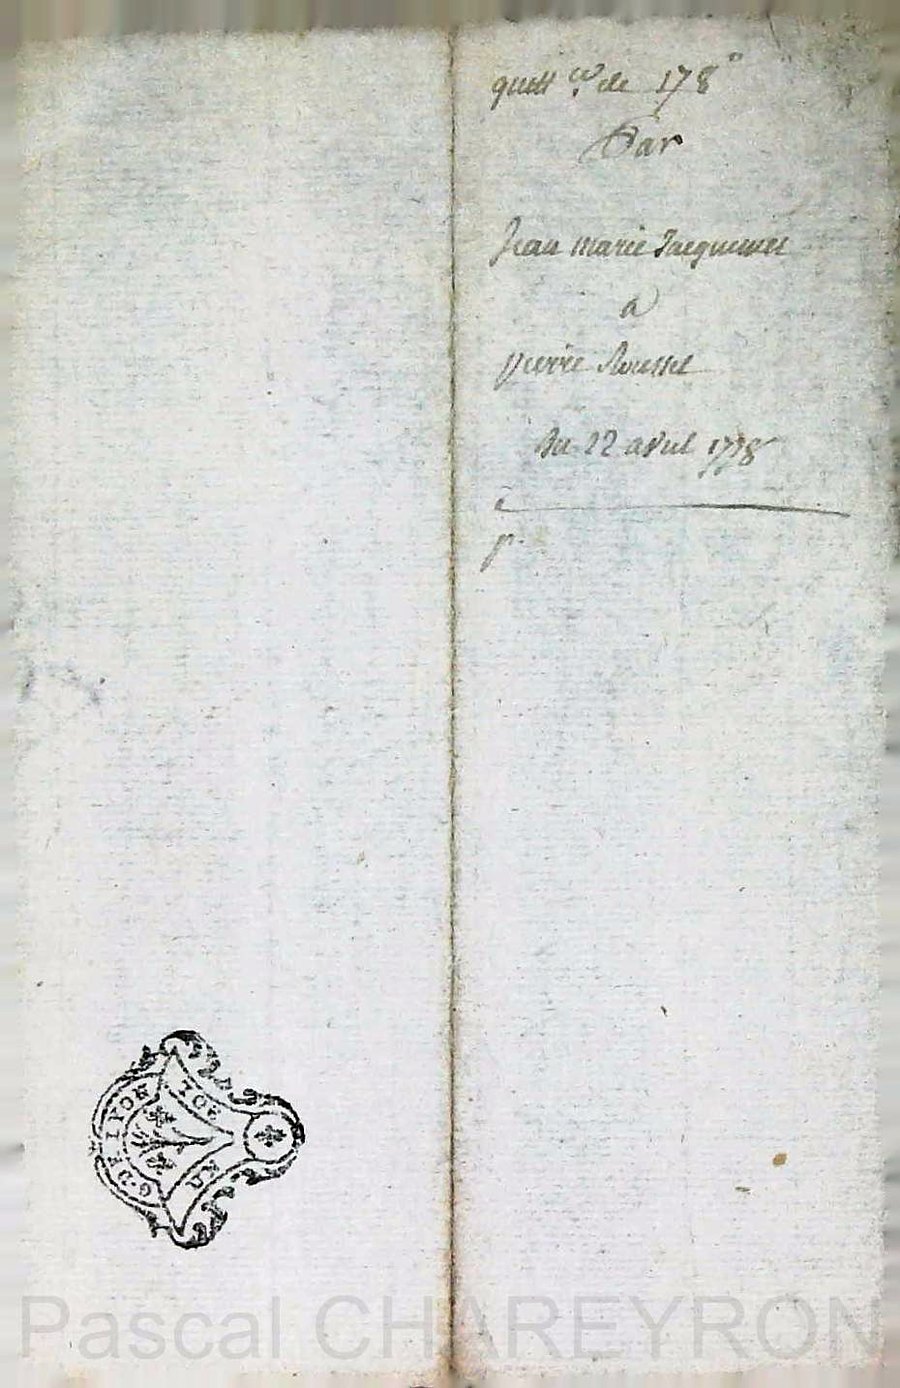 quitt.ce de 178#
Par
Jean marie Jacquemet
a
pierre Rousset
Du 22 avril 1778
p.
G. DE LYON
UN
SOL
Pascal CHAREYRON